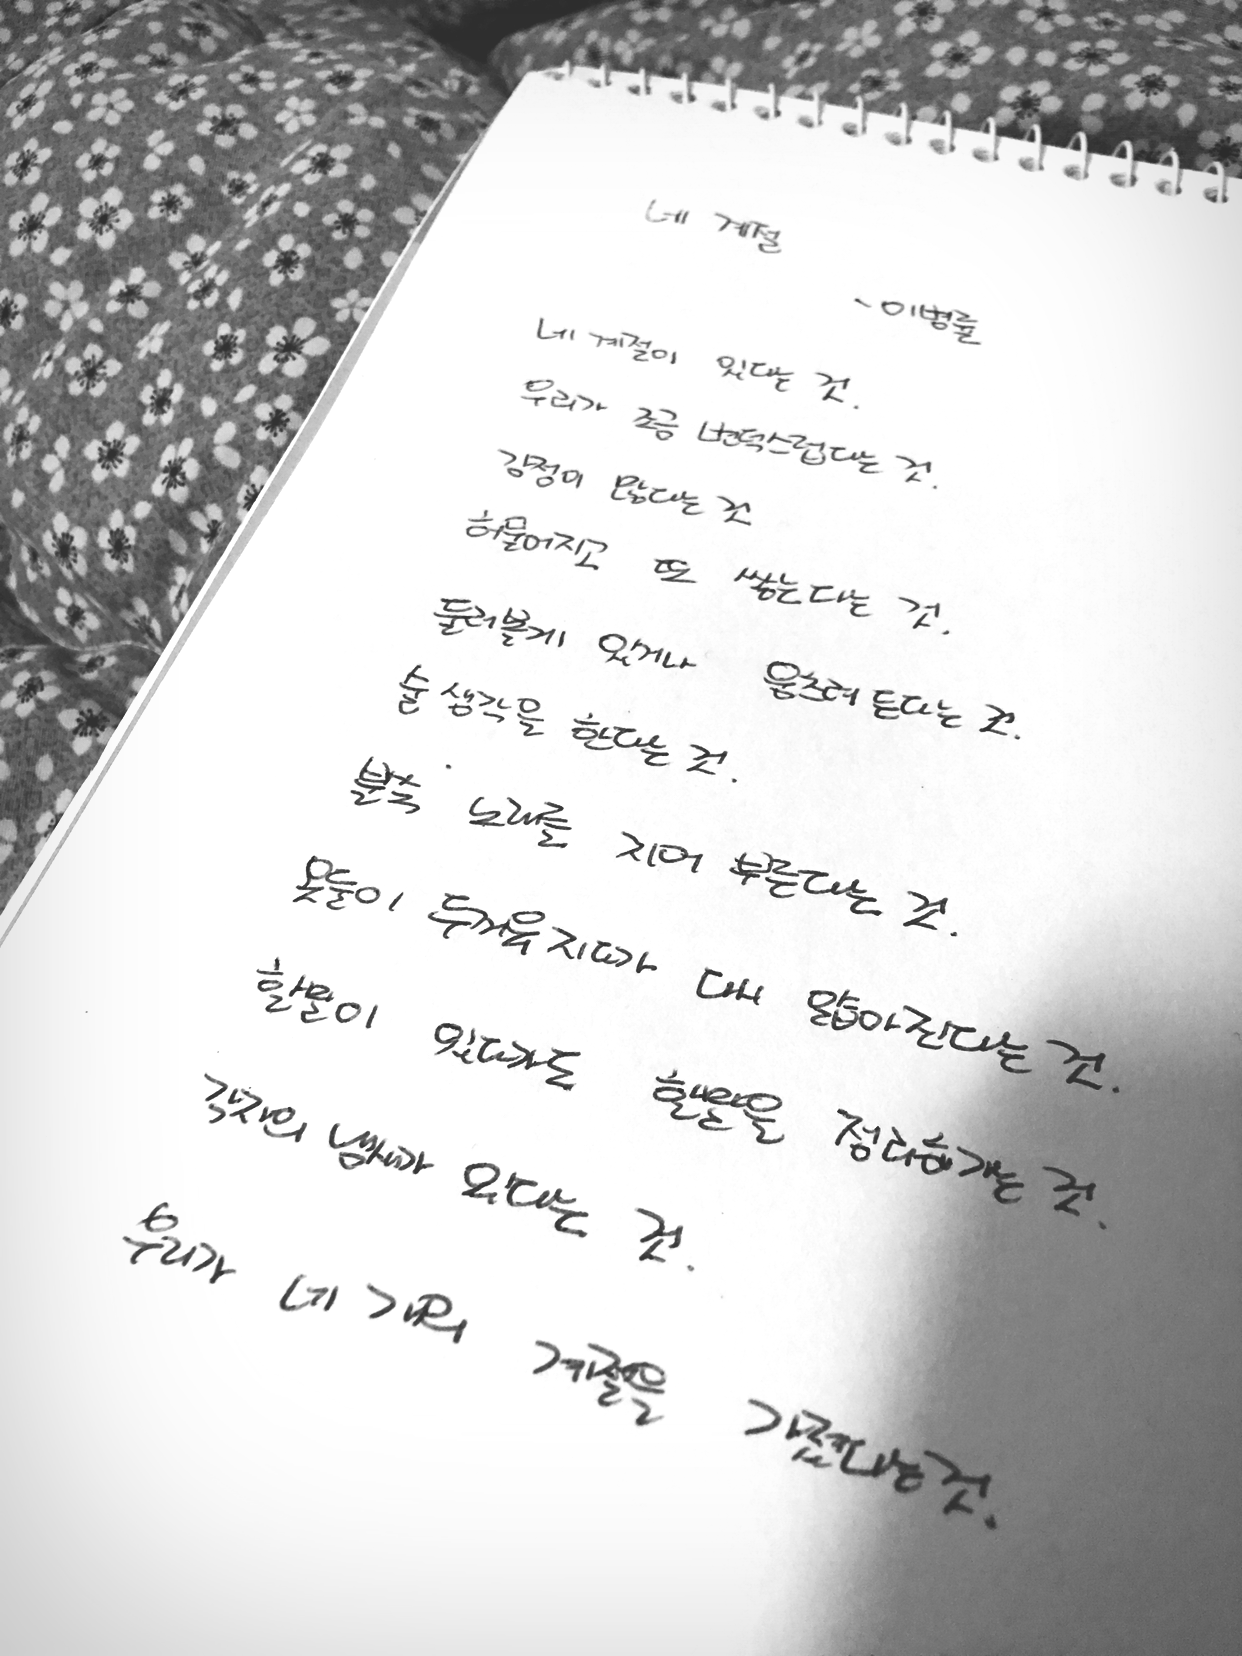 네 계절
- 이병률
네 계절이 있다는 것.
우리가 조금 변덕스럽다는 것.
감정이 많다는 것
허물어지고 또 쌓는다는 것.
둘러볼게 있거나 움츠려 든다는 것.
술 생각을 한다는 것.
불쑥 노래를 지어 부른다는 것.
옷들이 두꺼워지다가 다시 얇아진다는 것.
할말이 있다가도 할말을 정리해가는 것.
각자의 냄새가 있다는 것.
우리가 네 개의 계절을 가졌다는 것.